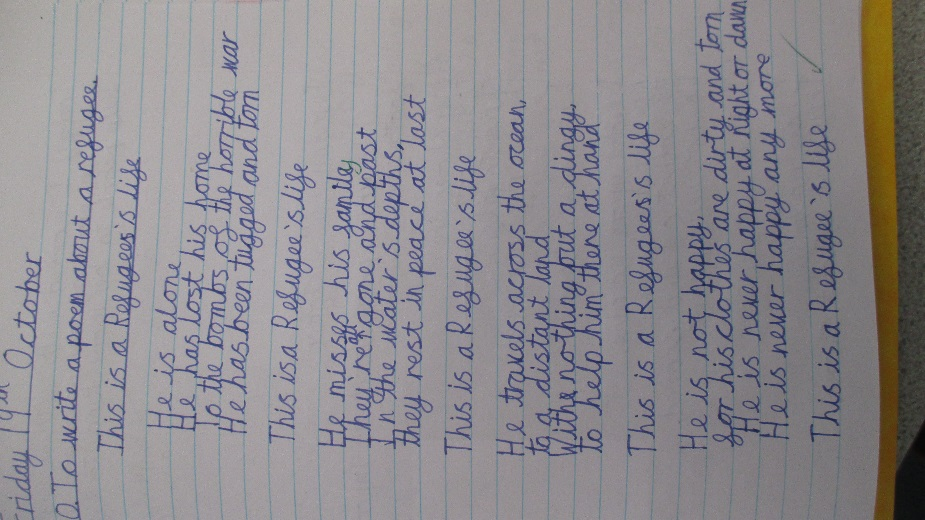 Friday 19th October
O. To write a poem about a refugee.
This is a Refugees's life
He is alone
He has lost his home
To the bombs of the horrible war
He has been tugged and torn
This is a Refugee's life
He misses his family
They're gone and past
In the water's depths,
they rest in peace at last
This is a Refugee's life
He travels across the ocean,
to a distant land
Withe nothing but a dingy,
to help him there at hand
This is a Refugees's life
He is not happy,
for his clothes are dirty and torn
He is never happy at Night or dawn
He is never happy any more
This is a Refugee's life